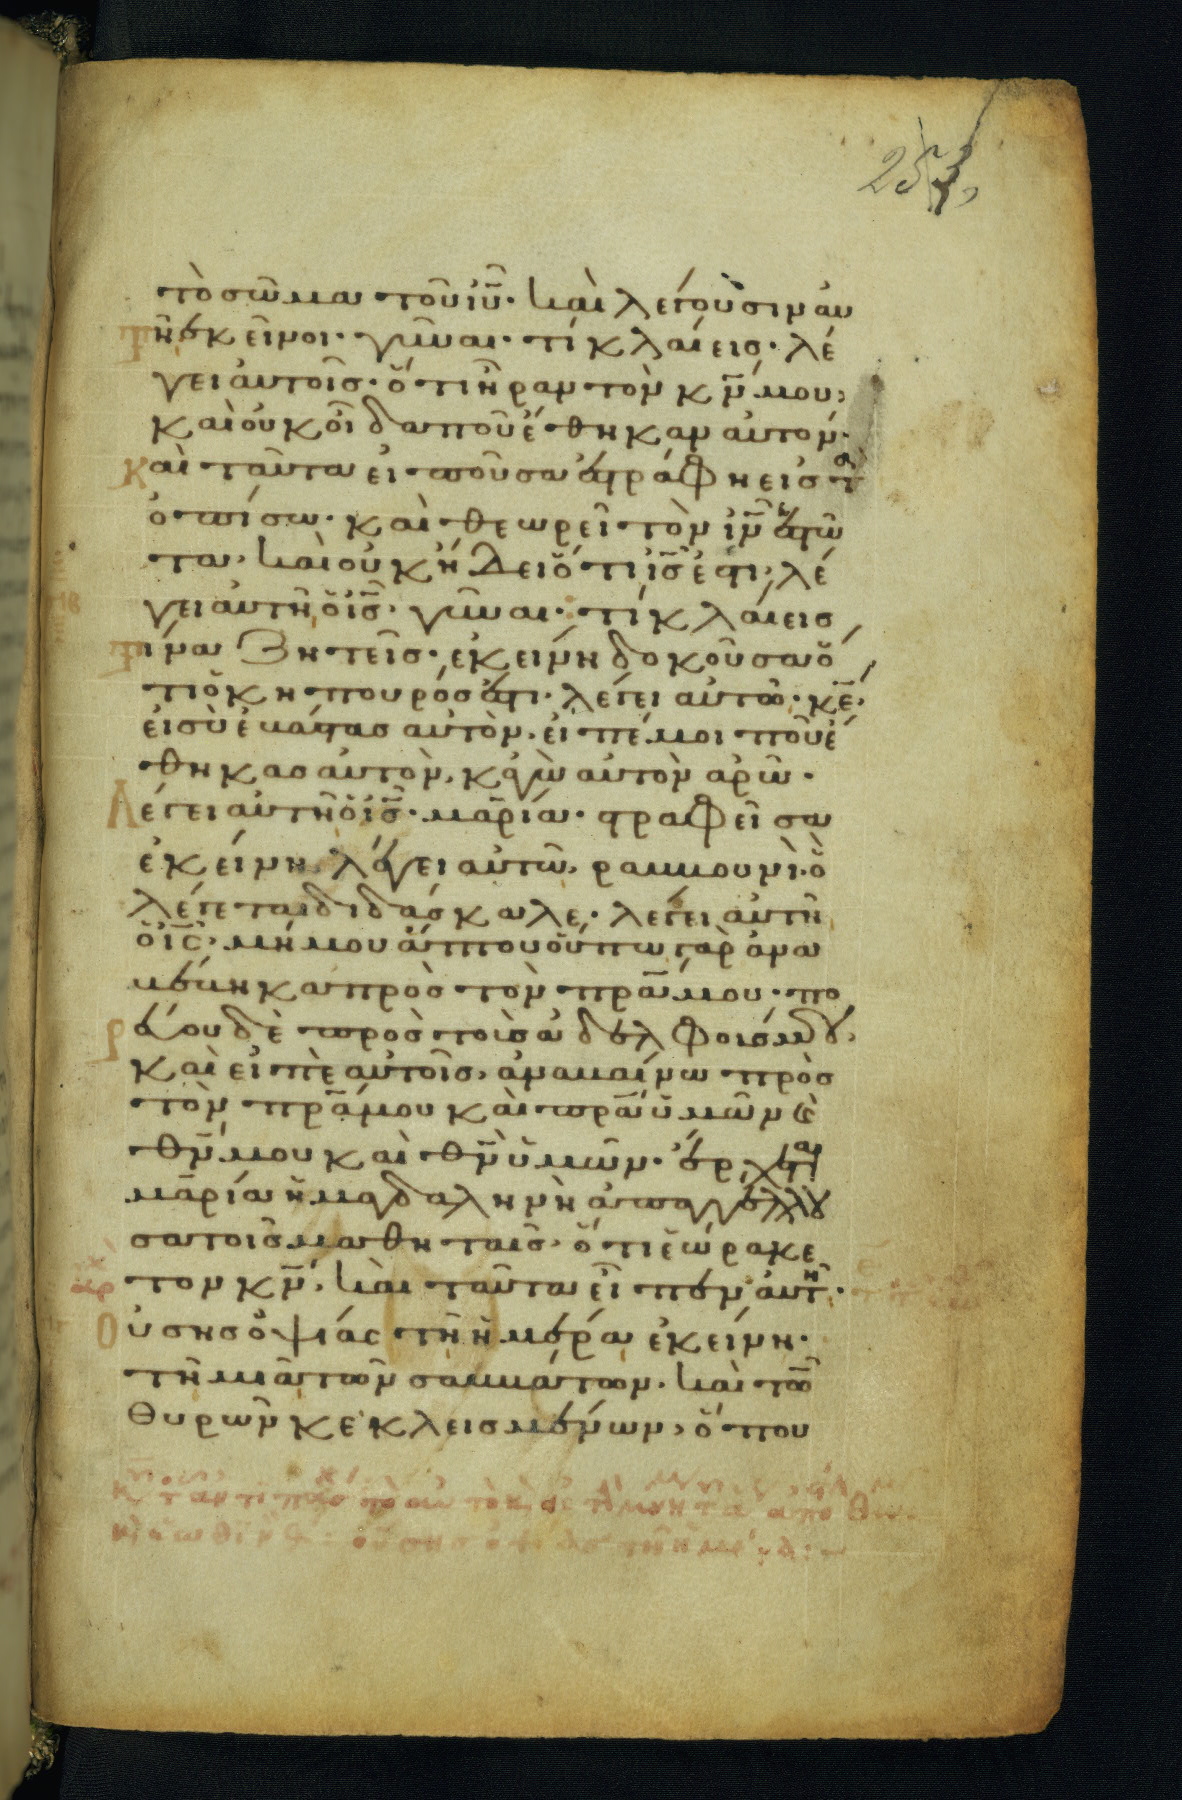 253,
τὸ σῶμα τοῦ ἰῦ. καὶ λέγουσιν αὐ
τῆ ἐκεῖνοι. γῦναι. τί κλαίεις. λέ
γει αὐτοῖς. ὅτι ἦραν τὸν κ̅ν̅ μου,
καὶ οὐκ οἶδα ποῦ ἔθηκαν αὐτόν.
Καὶ ταῦτα εἰποῦσα ἐστράφη εἰς τὰ
ὀπίσω. καὶ θεωρεῖ τὸν ἰ̅ν̅ ἑστῶ
τα, καὶ οὐκ ἤδει ὅτι ἰ̅ς̅ ἐστι, λέ
γει αὐτῆ ὁ ἰ̅ς̅. γῦναι. τί κλαίεις
τίνα ζητεῖς. ἐκείνη δοκοῦσα ὅ
τι ὁ κηπουρός ἐστι. λέγει αὐτῶ. κ̅ε̅.
εἰ σὺ ἐβάστασας αὐτὸν. εἰπέ μοι ποῦ ἔ
θηκας αὐτὸν, κἀγὼ αὐτὸν ἀρῶ.
Λέγει αὐτῆ ὁ ἰ̅ς̅. μαρία. στραφεῖσα
ἐκείνη λέγει αὐτῶ, ραββουνὶ. ὃ
λέγεται διδάσκαλε. λέγει αὐτῆ
ὁ ἰ̅ς̅. μή μου ἅπτου οὔπω γὰρ ἀνα
βέβηκα πρὸς τὸν π̅ρ̅α̅ μου. πο
ρεύου δὲ πρὸς τοὺς ἀδελφούς μου.
καὶ εἰπὲ αὐτοῖς, ἀναβαίνω πρὸς
τὸν π̅ρ̅α̅ μου καὶ π̅ρ̅α̅ ὑμῶν καὶ
θ̅ν̅ μου καὶ θ̅ν̅ ὑμῶν. ἔρχεται
μαρία ἡ μαγδαληνὴ ἀπαγγέλλου
σα τοῖς μαθηταῖς. ὅτι ἑώρακε
τον κ̅ν̅, καὶ ταῦτα εἶπεν αὐτῆ.
Οὔσης ὀψίας τῆ ἡμέρα ἐκείνη.
τῆ μιᾶ τῶν σαββάτων. καὶ τῶν
θυρῶν κεκλεισμένων, ὅπου
οὔσης ὀψίας τῆ ἡμέρα: